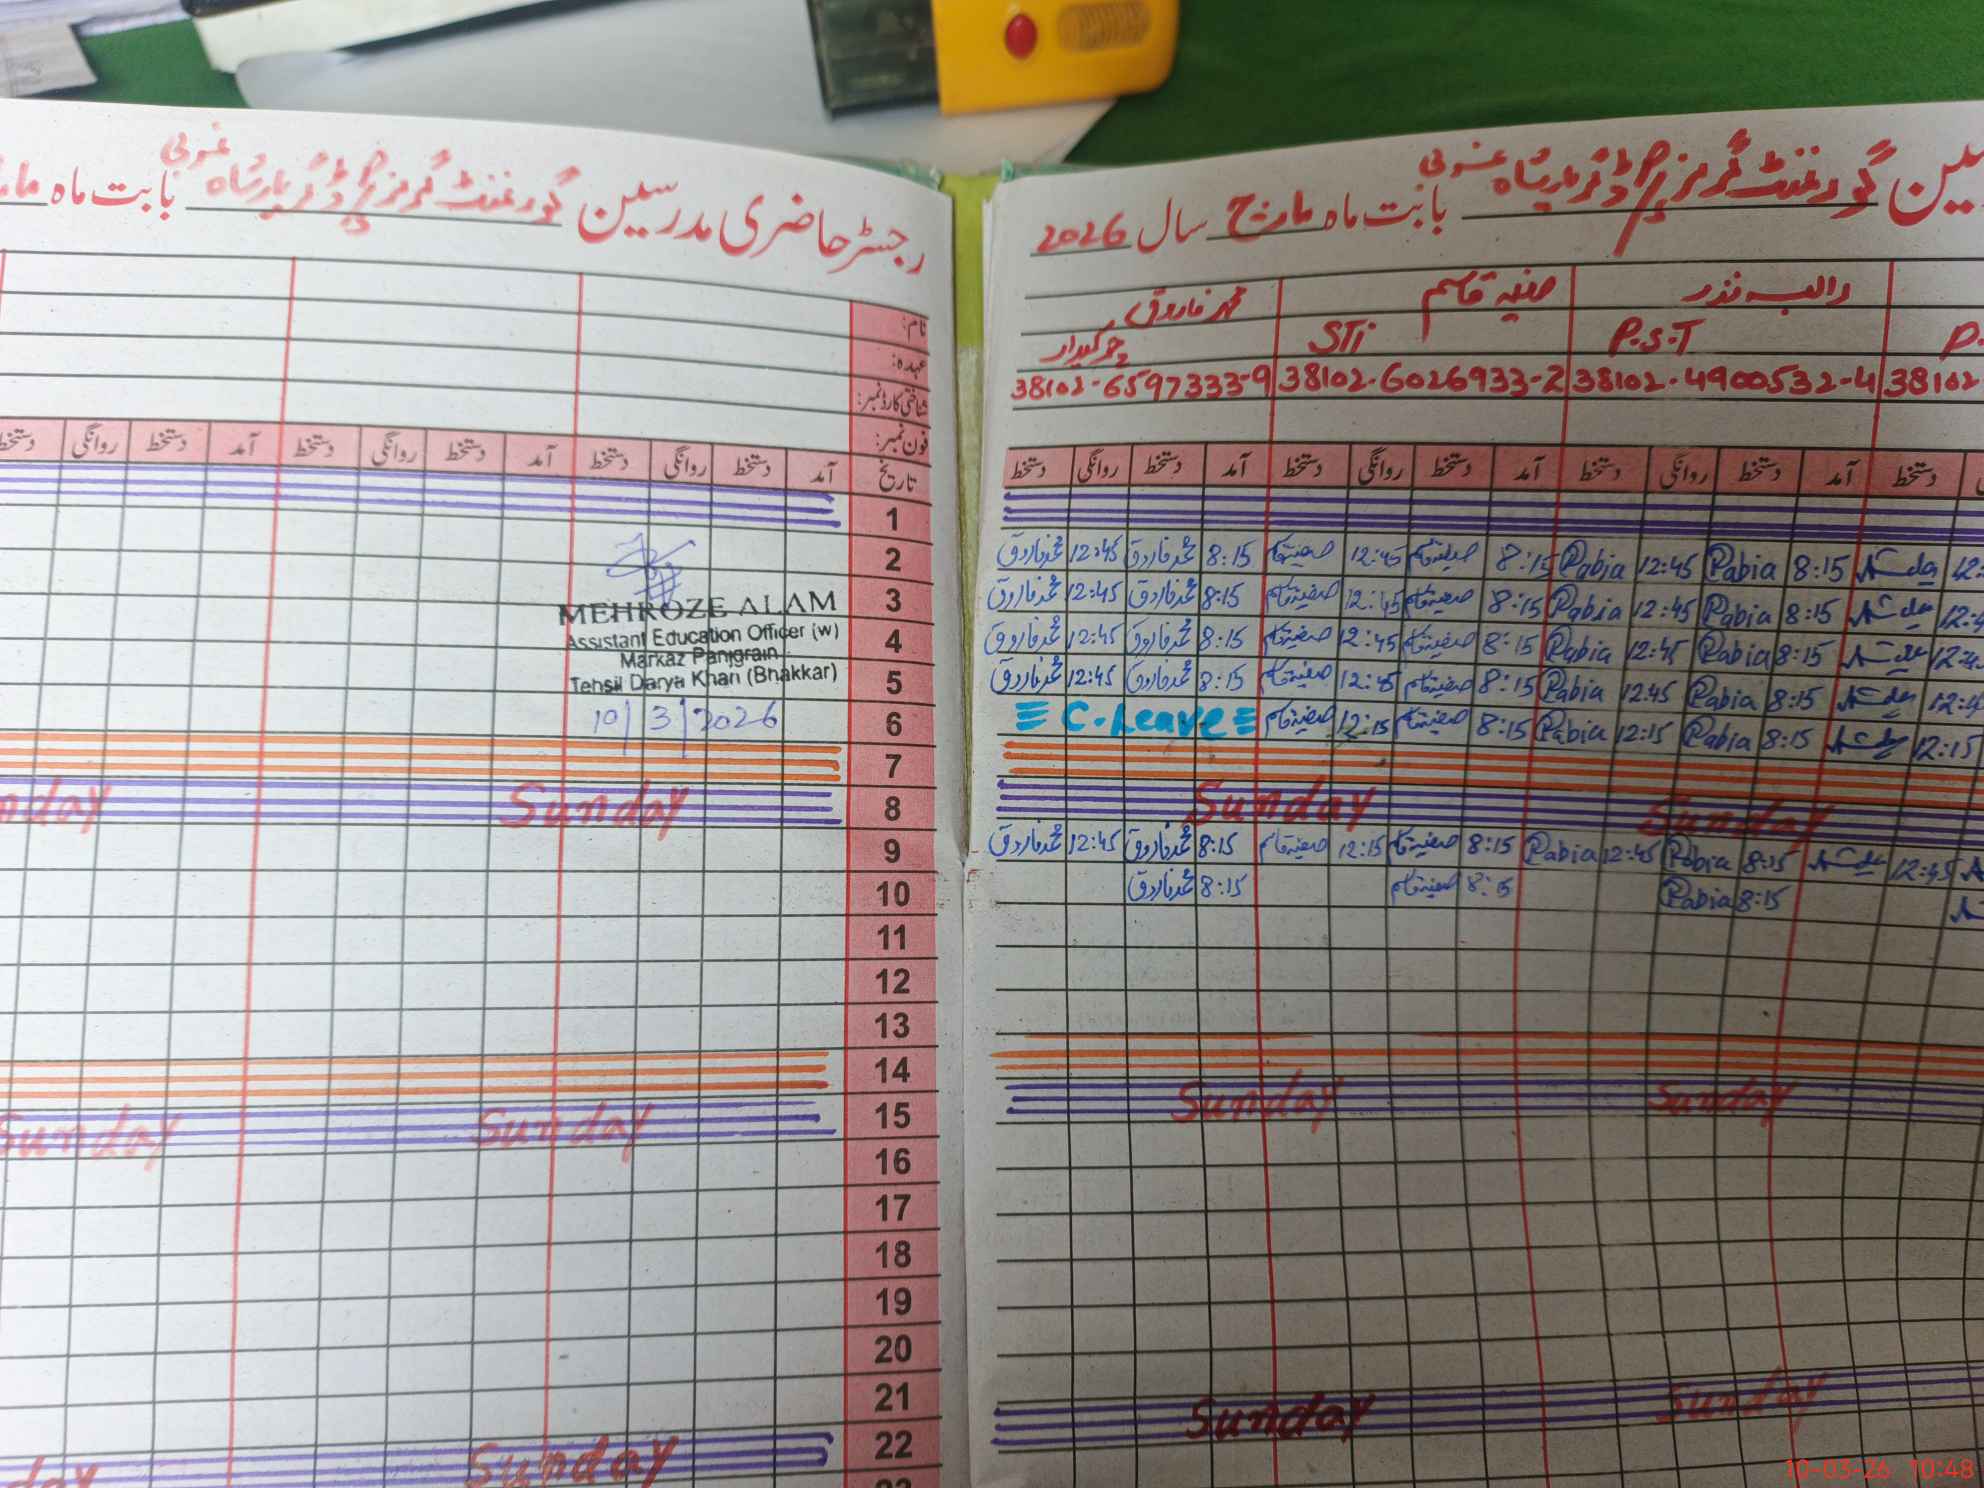 رجسٹر حاضری مدرسین گورنمنٹ گرلز پرائمری بابت ماہ
نام:
عہدہ:
شناختی کارڈ نمبر:
فون نمبر:
تاریخ آمد دستخط روانگی دستخط آمد دستخط روانگی دستخط آمد دستخط روانگی دستخط
1
2
3
MEHROZE ALAM
Assistant Education Officer (w)
4
Markaz Panjgrain
5
Tehsil Darya Khan (Bhakkar)
6
10/3/2026
7
8 Sunday
9
10
11
12
13
14
15 Sunday Sunday
16
17
18
19
20
21
22 Sunday
گورنمنٹ گرلز بابت ماہ مارچ سال 2026
محمد فاروق
صفیہ قاسم
رابعہ نذر
چوکیدار
STi
P.S.T
P.
38102-6597333-9
38102-6026933-2
38102-4900532-4
38102-
دستخط آمد دستخط روانگی دستخط آمد دستخط روانگی دستخط آمد دستخط روانگی دستخط
12: Rabia 8:15 Rabia 12:45 صفیہ قاسم 8:15 صفیہ قاسم 12:45 محمد فاروق 8:15 محمد فاروق 12:45
12:4 Rabia 8:15 Rabia 12:45 صفیہ قاسم 8:15 صفیہ قاسم 12:45 محمد فاروق 8:15 محمد فاروق 12:45
12:4 Rabia 8:15 Rabia 12:45 صفیہ قاسم 8:15 صفیہ قاسم 12:45 محمد فاروق 8:15 محمد فاروق 12:45
12:4 Rabia 8:15 Rabia 12:45 صفیہ قاسم 8:15 صفیہ قاسم 12:45 محمد فاروق 8:15 محمد فاروق 12:45
12:15 Rabia 8:15 Rabia 12:15 صفیہ قاسم 8:15 صفیہ قاسم 12:15 C. Leave
Sunday Sunday
12:45 Rabia 8:15 Rabia 12:45 صفیہ قاسم 8:15 صفیہ قاسم 12:15 محمد فاروق 8:15 محمد فاروق 12:45
Rabia 8:15 صفیہ قاسم 8:15 محمد فاروق 8:15
Sunday Sunday
Sunday Sunday
10-03-26 10:48